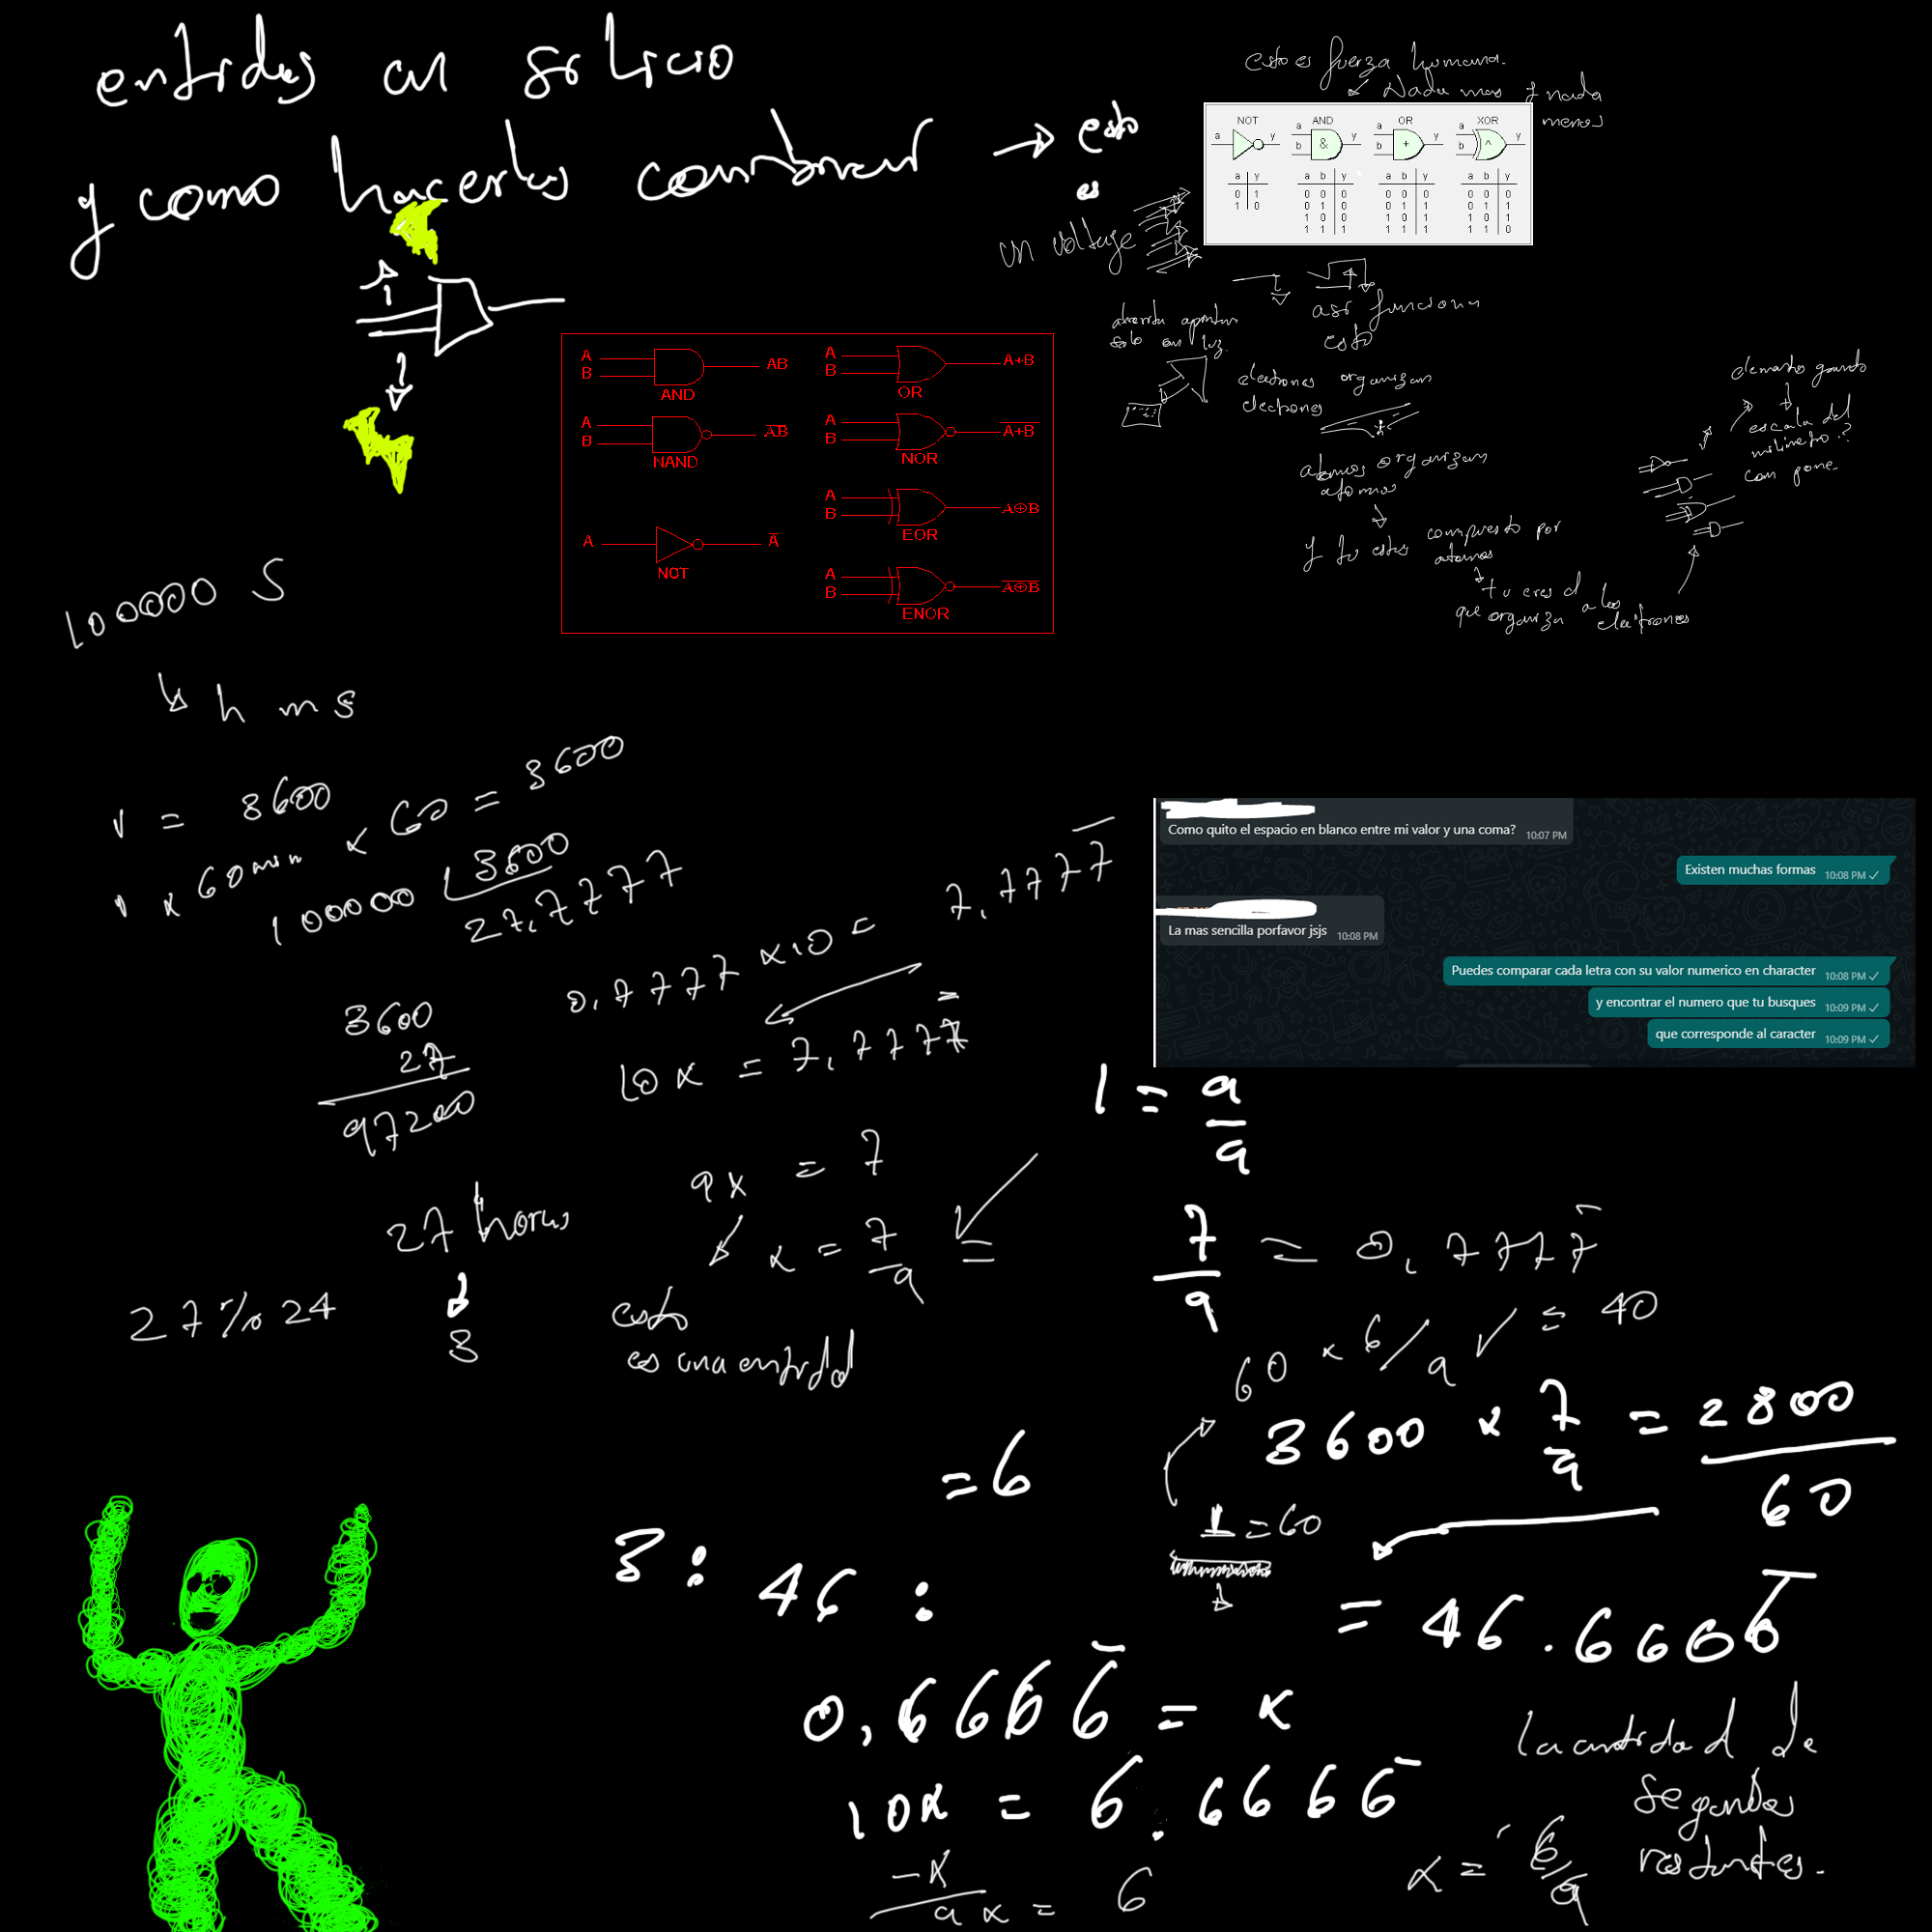 entidas en silicio
y como hacerlas combinar → esto
es
un voltage
esto es fuerza humana.
Nada mas y nada
menos
NOT AND OR XOR
a y a b y a b y a b y
& + ^
a y a b y a b y a b y
0 1 0 0 0 0 0 0 0 0 0
1 0 0 1 0 0 1 1 0 1 1
1 0 0 1 0 1 1 0 1
1 1 1 1 1 1 1 1 0
asi funciona
esto
solo en luz.
electrones organizan
electrones
atomos organizan
atomos
y tu estas compuesto por
atomos
tu eres el
que organiza a los
electrones
escala del
milimetro.?
1
?
A B AB AND
A B A+B OR
A B AB NAND
A B A+B NOR
A B A⊕B EOR
A A NOT
A B A⊕B ENOR
100000 S
h m s
1 = 3600
1 x 60min x 60 = 3600
100000 3600
27,7777
3600
27
97200
27 horas
27 % 24
3
0,7777 x 10 = 7,7777
10x = 7,7777
9x = 7
x = 7/9 =
esto
es una entidad
Como quito el espacio en blanco entre mi valor y una coma? 10:07 PM
Existen muchas formas 10:08 PM
La mas sencilla porfavor jsjs 10:08 PM
Puedes comparar cada letra con su valor numerico en character 10:08 PM
y encontrar el numero que tu busques 10:09 PM
que corresponde al caracter 10:09 PM
1 = 9/9
7/9 = 0,7777
60 x 6/9 = 40
3600 x 7/9 = 2800/60
1 = 60
= 46.6666
= 6
3 : 46 :
0,6666 = x
10x = 6.6666
-x
9x = 6
x = 6/9
la cantidad de
segundos
restantes.